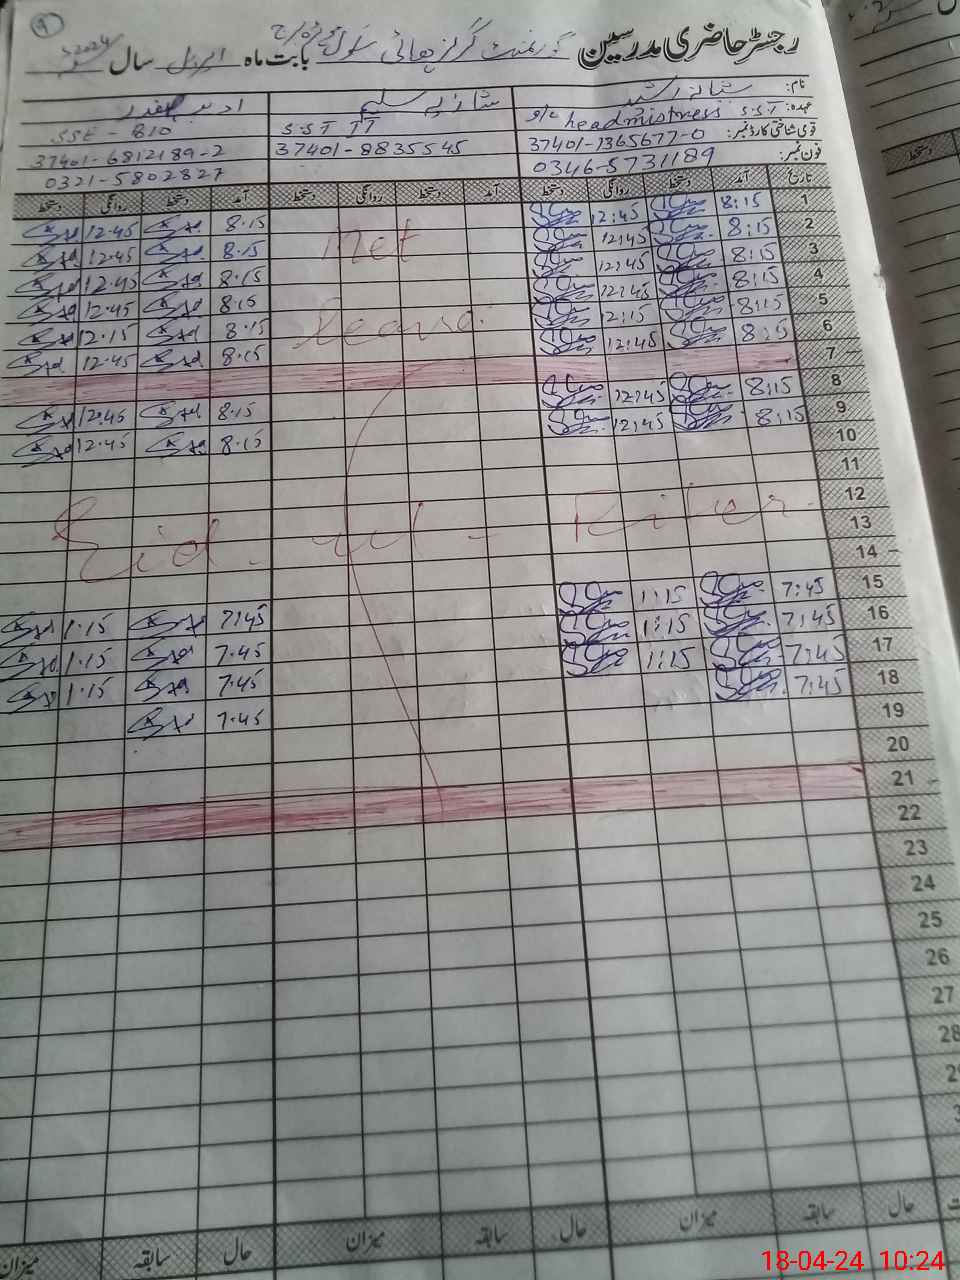 رجسٹر حاضری مدرسین گورنمنٹ گرلز ہائی سکول بابت ماہ اپریل سال 2024
نام: شازیہ سلیم
عہدہ: S.S.T headmistress S.S.T IT SSE - BIO
قومی شناختی کارڈ نمبر: 37401-1365677-0 37401-8835545 37401-6812189-2
فون نمبر: 0346-5731189 0321-5802827
تاریخ آمد دستخط روانگی دستخط آمد دستخط روانگی دستخط آمد دستخط روانگی دستخط
1 8:15 12:45 8.15 12.45
2 8:15 12:45 Met 8.15 12.45
3 8:15 12:45 8.15 12.45
4 8:15 12:45 8.15 12.45
5 8:15 12:15 8.15 12.15
6 8:15 12:45 8.15 12.45
7
8 8:15 12:45 8.15 12.45
9 8:15 12:45 8.15 12.45
10
11
12 Eid - ul -
13
14
15 7:45 1:15 7:45 1.15
16 7:45 1:15 7.45 1.15
17 7:45 1:15 7.45 1.15
18 7:45 7.45
19
20
21
22
23
24
25
26
27
28
حال سابقہ میزان حال سابقہ میزان حال سابقہ میزان
18-04-24 10:24